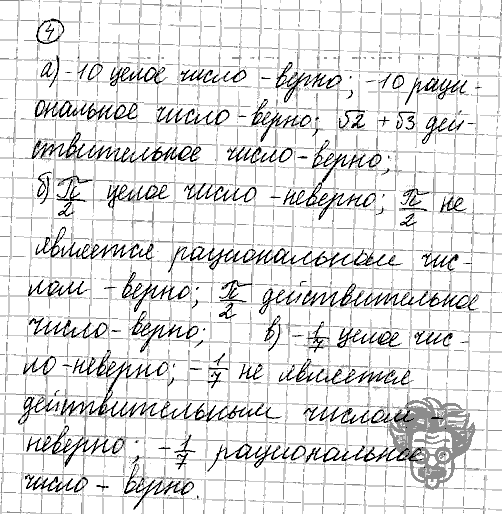 4
а) -10 целое число - верно; -10 раци-
ональное число - верно; √2 + √3 дей-
ствительное число - верно;
б) π/2 целое число - неверно; π/2 не
является рациональным чис-
лом - верно; π/2 действительное
число - верно; в) -1/7 целое чис-
ло - неверно; -1/7 не является
действительным числом -
неверно; -1/7 рациональное
число - верно.